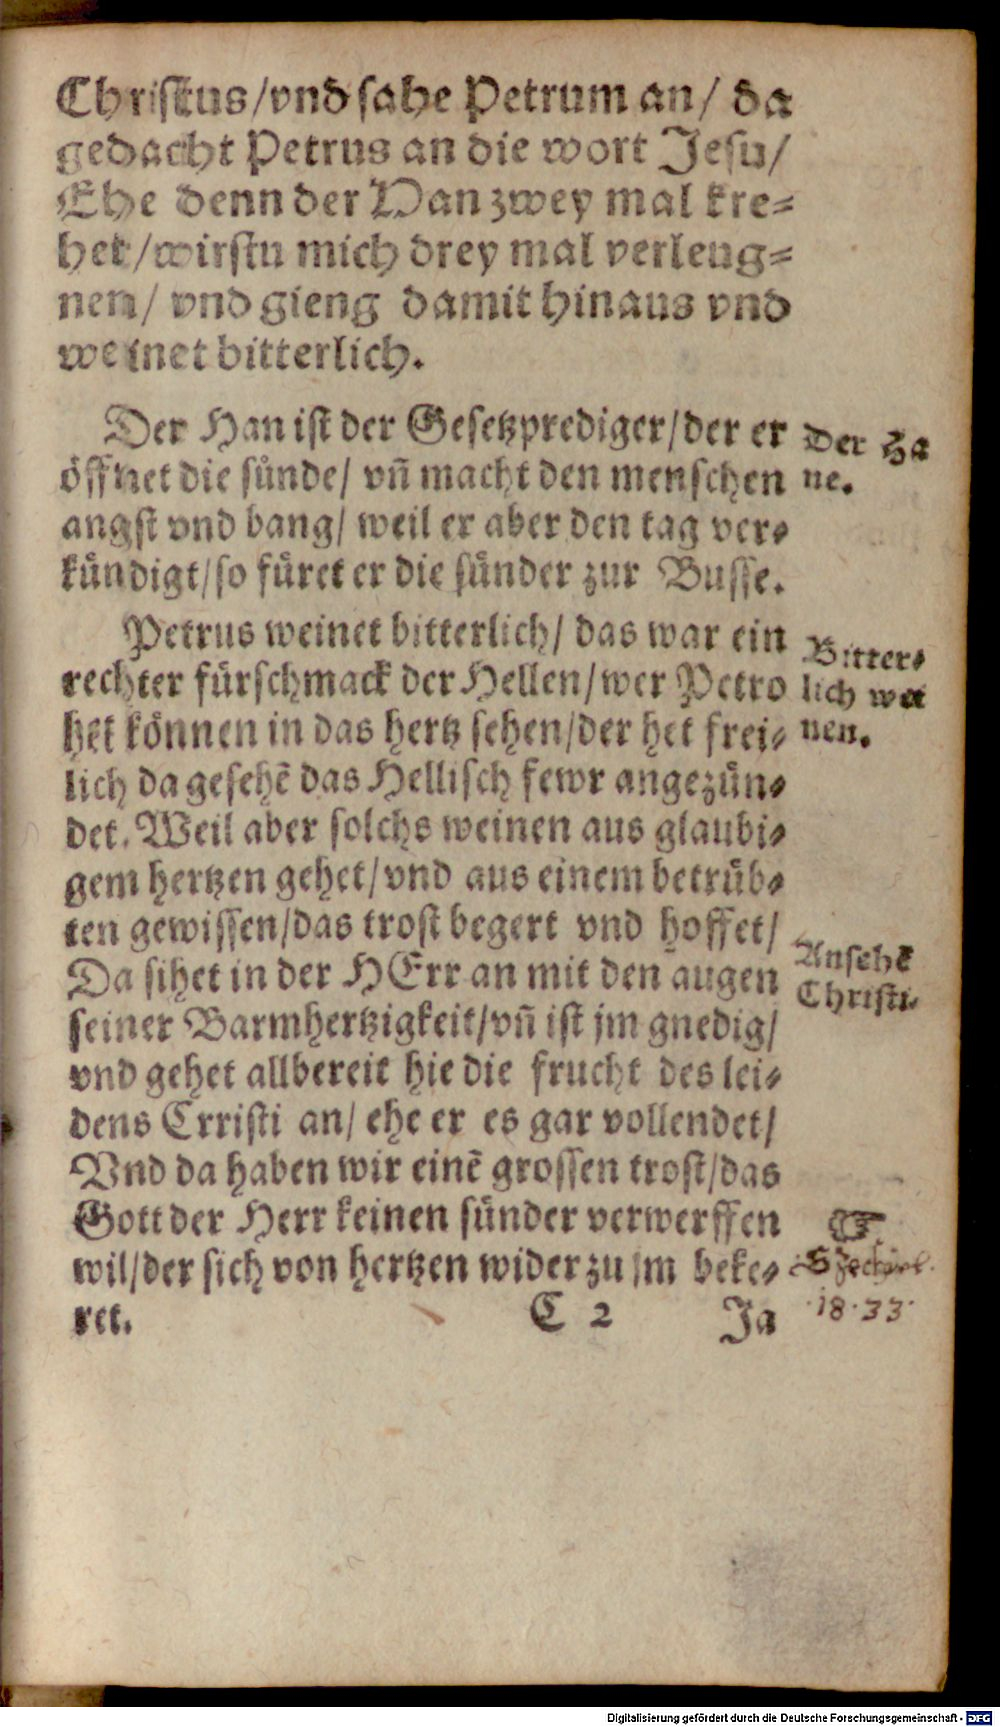 Christus/vnd sahe Petrum an/ da
gedacht Petrus an die wort Jesu/
Ehe denn der Han zwey mal kre⸗
het/wirstu mich drey mal verleug⸗
nen/ vnd gieng damit hinaus vnd
weinet bitterlich.
Der Han ist der Gesetzprediger/der er
öffnet die sünde/ vñ macht den menschen
angst vnd bang/ weil er aber den tag ver⸗
kündigt/so füret er die sünder zur Busse.
Der Ha
ne.
Petrus weinet bitterlich/ das war ein
rechter fürschmack der Hellen/wer Petro
het können in das hertz sehen/der het frei⸗
lich da gesehẽ das Hellisch fewr angezün⸗
det. Weil aber solchs weinen aus glaubi⸗
gem hertzen gehet/vnd aus einem betrüb⸗
ten gewissen/das trost begert vnd hoffet/
Da sihet in der HErr an mit den augen
seiner Barmhertzigkeit/vñ ist jm gnedig/
vnd gehet allbereit hie die frucht des lei⸗
dens Crristi an/ ehe er es gar vollendet/
Vnd da haben wir einẽ grossen trost/das
Gott der Herr keinen sünder verwerffen
wil/der sich von hertzen wider zu jm beke⸗
ret.
Bitter⸗
lich wei
nen.
Ansehẽ
Christi.
18. 33.
C 2
Ja
Digitalisierung gefördert durch die Deutsche Forschungsgemeinschaft - DFG